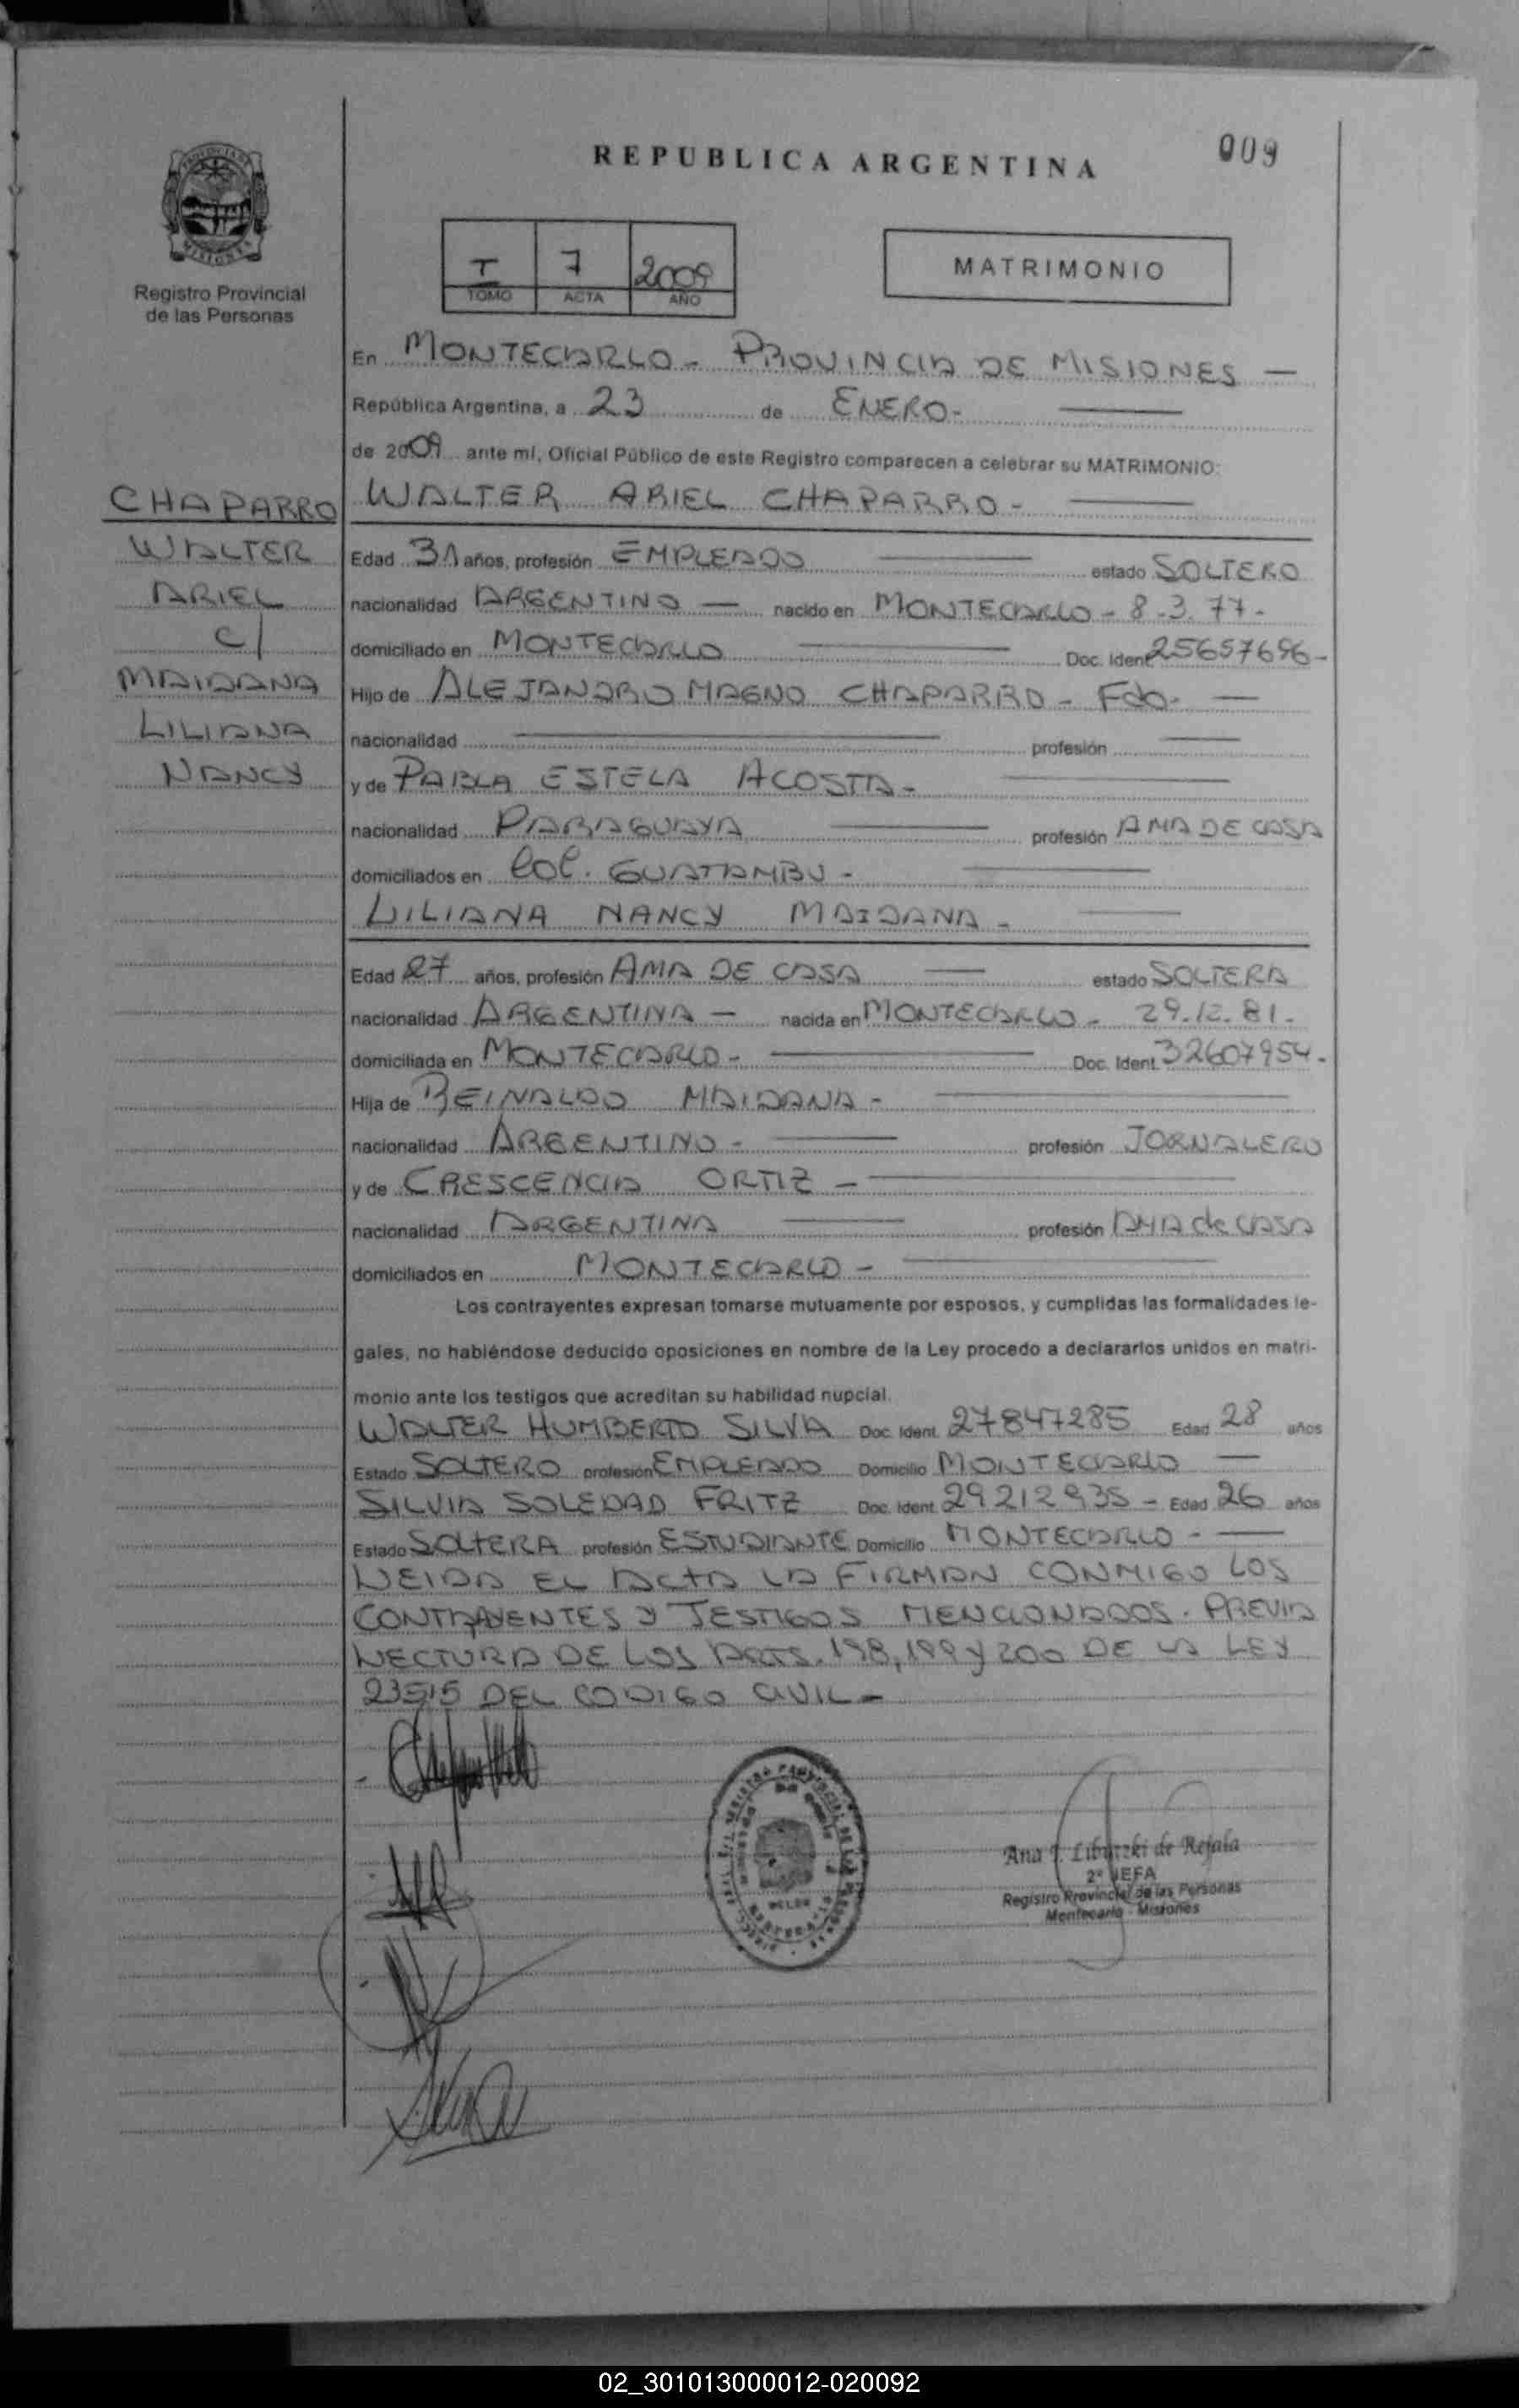 REPUBLICA ARGENTINA
009
Registro Provincial
de las Personas
I 7 2009
TOMO ACTA AÑO
MATRIMONIO
En MONTECARLO - PROVINCIA DE MISIONES —
República Argentina, a 23 de ENERO-
de 2009 ante mí, Oficial Público de este Registro comparecen a celebrar su MATRIMONIO:
CHAPARRO
WALTER
ARIEL
c/
MAIDANA
LILIANA
NANCY
WALTER ARIEL CHAPARRO -
Edad 31 años, profesión EMPLEADO estado SOLTERO
nacionalidad ARGENTINO — nacido en MONTECARLO - 8-3.77-
domiciliado en MONTECARLO Doc. Ident 25657696-
Hijo de ALEJANDRO MAGNO CHAPARRO - Fdo- —
nacionalidad — profesión —
y de PABLA ESTELA ACOSTA -
nacionalidad PARAGUAYA profesión AMA DE CASA
domiciliados en Col. GUATAMBU -
LILIANA NANCY MAIDANA -
Edad 27 años, profesión AMA DE CASA — estado SOLTERA
nacionalidad ARGENTINA — nacida en MONTECARLO - 29.12.81-
domiciliada en MONTECARLO - Doc. Ident. 32607954-
Hija de REINALDO MAIDANA -
nacionalidad ARGENTINO - profesión JORNALERO
y de CRESCENCIA ORTIZ -
nacionalidad ARGENTINA profesión AMA de CASA
domiciliados en MONTECARLO -
Los contrayentes expresan tomarse mutuamente por esposos, y cumplidas las formalidades le-
gales, no habiéndose deducido oposiciones en nombre de la Ley procedo a declararlos unidos en matri-
monio ante los testigos que acreditan su habilidad nupcial.
WALTER HUMBERTO SILVA Doc. Ident. 27847285 Edad 28 años
Estado SOLTERO profesión EMPLEADO Domicilio MONTECARLO —
SILVIA SOLEDAD FRITZ Doc. Ident. 29212935 - Edad 26 años
Estado SOLTERA profesión ESTUDIANTE Domicilio MONTECARLO - —
LEIDA EL ACTA LA FIRMAN CONMIGO LOS
CONTRAYENTES Y TESTIGOS MENCIONADOS. PREVIA
LECTURA DE LOS ARTS. 198, 199 y 200 DE LA LEY
23515 DEL CODIGO CIVIL -
2º JEFA
Registro Provincial de las Personas
Montecarlo - Misiones
02_301013000012-020092